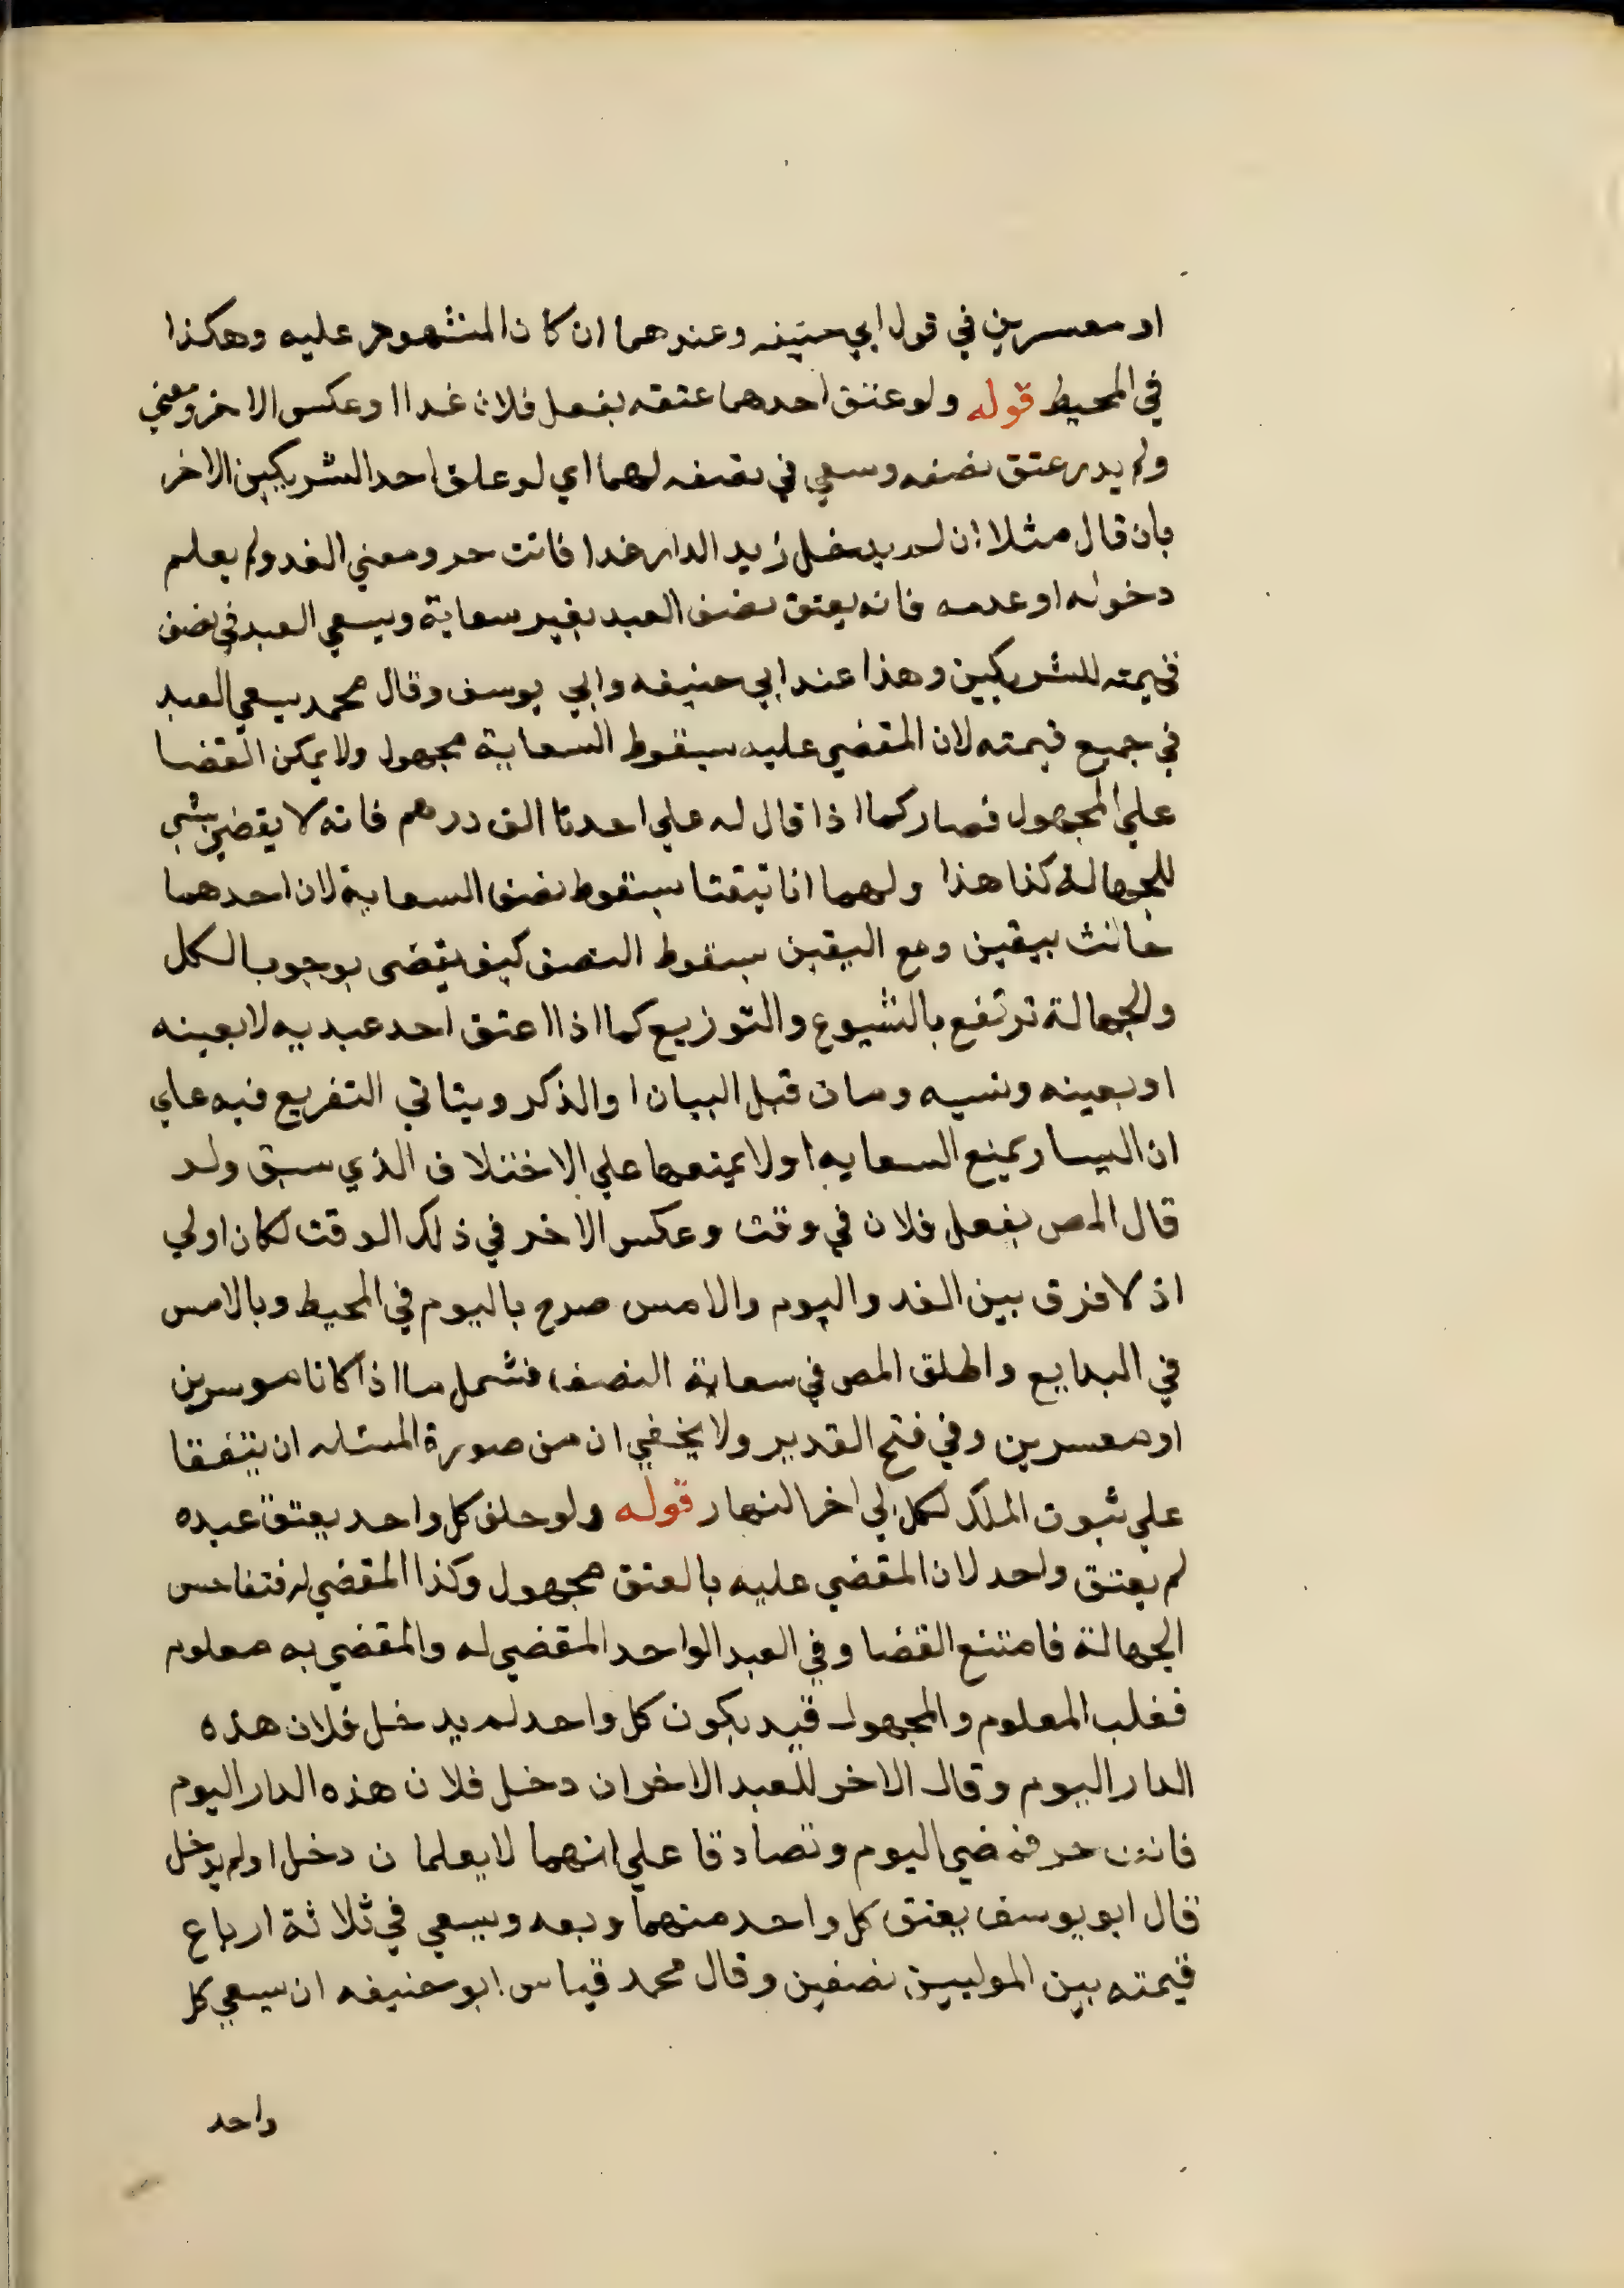 او معسرين في قول ابي حنيفه وعندهما ان كان المشهود عليه وهكذا
في المحيط قوله ولو عتق احدهما عتقه بفعل فلان غدا ا وعكس الاخر ومضي
ولم يدر عتق نصفه وسعي في نصفه لهما اي لو علق احد الشريكين الاخر
بان قال مثلا ان لم يدخل زيد الدار غدا فانت حر ومضي الغد ولم يعلم
دخوله او عدمه فانه يعتق نصف العبد بغير سعاية ويسعي العبد في نصف
قيمته للشريكين وهذا عند ابي حنيفه وابي يوسف وقال محمد يسعي العبد
في جميع قيمته لان المقضي عليه بسقوط السعاية مجهول ولا يمكن القضا
علي المجهول فصار كما اذا قال له علي احدنا الف درهم فانه لا يقضي بشي
للجهالة كذا هذا ولهما انا تيقنا بسقوط نصف السعاية لان احدهما
حانث بيقين ومع اليقين بسقوط النصف كيف يقضى بوجوب الكل
والجهالة ترتفع بالشيوع والتوزيع كما اذا اعتق احد عبديه لا بعينه
او بعينه ونسيه ومات قبل البيان ا والذكر ويتاتي التفريع فيه علي
ان اليسار يمنع السعايه اولا يمنعها علي الاختلاف الذي سبق ولو
قال المص بفعل فلان في وقت وعكس الاخر في ذلك الوقت لكان اولي
اذ لا فرق بين الغد واليوم والامس صرح باليوم في المحيط وبالامس
في البدايع واطلق المص في سعاية النصف فشمل ما اذا كانا موسرين
او معسرين وفي فتح القدير ولا يخفي ان من صورة المسئله ان يتفقا
علي ثبوت الملك لكل الي اخر النهار قوله ولو حلف كل واحد بعتق عبده
لم يعتق واحد لان المقضي عليه بالعتق مجهول وكذا المقضي له فتفاحش
الجهالة فامتنع القضا وفي العبد الواحد المقضي له والمقضي به معلوم
فغلب المعلوم والمجهول قيد بكون كل واحد لم يدخل فلان هذه
الدار اليوم وقال الاخر للعبد الاخر ان دخل فلان هذه الدار اليوم
فانت حر فمضي اليوم وتصادقا علي انهما لا يعلمان دخل اولم يدخل
قال ابو يوسف يعتق كل واحد منهما ربعه ويسعي في ثلاثة ارباع
قيمته بين الموليين نصفين وقال محمد قياس ابو حنيفه ان يسعي كل
واحد